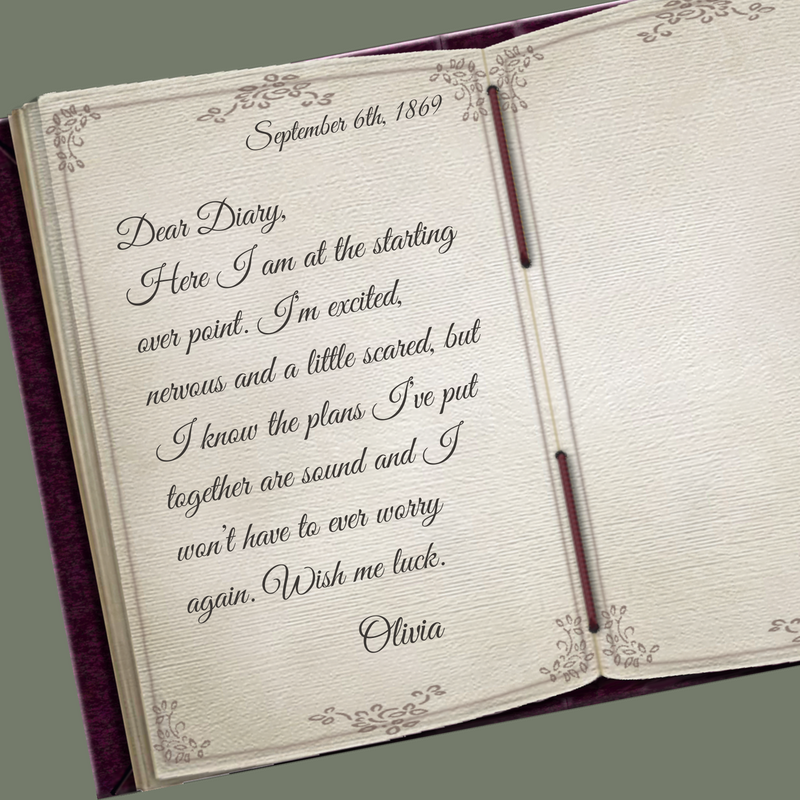 September 6th, 1869
Dear Diary,
Here I am at the starting
over point. I'm excited,
nervous and a little scared, but
I know the plans I've put
together are sound and I
won't have to ever worry
again. Wish me luck.
Olivia